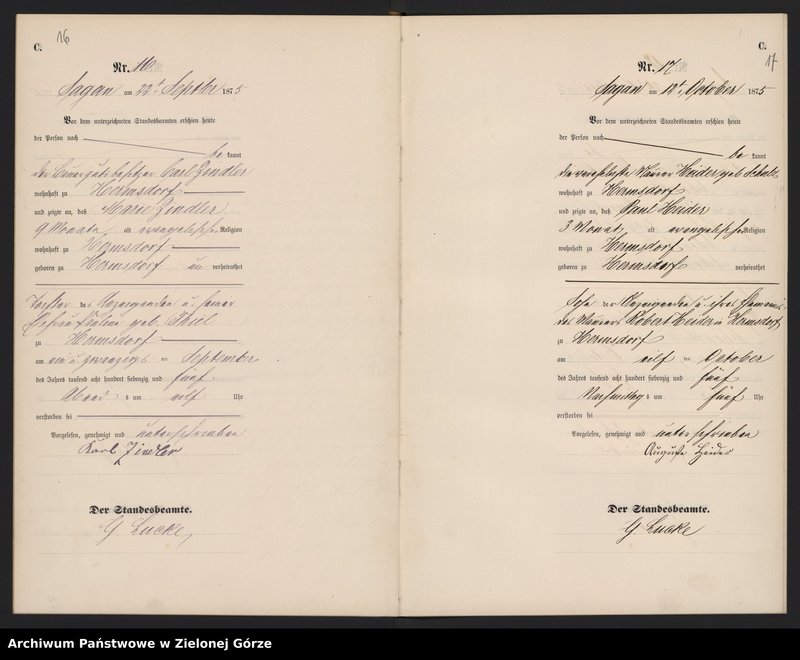 16
C.
Nr. 16.
Sagan am 22t. Septbr 1875
Vor dem unterzeichneten Standesbeamten erschien heute
der Person nach
be kannt
der Carl Zindler
wohnhaft zu Hermsdorf
und zeigte an, daß Marie Zindler
9 Monate, alt evangelischer Religion
wohnhaft zu Hermsdorf
geboren zu Hermsdorf un verheirathet
Tochter des Anzeigenden u. seiner
geb. Thiel
zu Hermsdorf
am ein u. zwanzigs ten September
des Jahres tausend acht hundert siebenzig und fünf
Abend s um elf Uhr
verstorben sei
Vorgelesen, genehmigt und unterschrieben
Karl Zindler
Der Standesbeamte.
G Lucke
C.
17
Nr. 17.
Sagan am 12t. October 1875
Vor dem unterzeichneten Standesbeamten erschien heute
der Person nach
be kannt
die verehelichte Maurer Heider geb.
wohnhaft zu Hermsdorf
und zeigte an, daß Paul Heider
3 Monat, alt evangelischer Religion
wohnhaft zu Hermsdorf
geboren zu Hermsdorf verheirathet
Sohn der Anzeigenden u. ihres Ehemanns
des Maurer Robert Heider u Hermsdorf
zu Hermsdorf
am elf ten October
des Jahres tausend acht hundert siebenzig und fünf
Nachmittag s um fünf Uhr
verstorben sei
Vorgelesen, genehmigt und unterschrieben
Auguste Heider
Der Standesbeamte.
G. Lucke
Archiwum Państwowe w Zielonej Górze